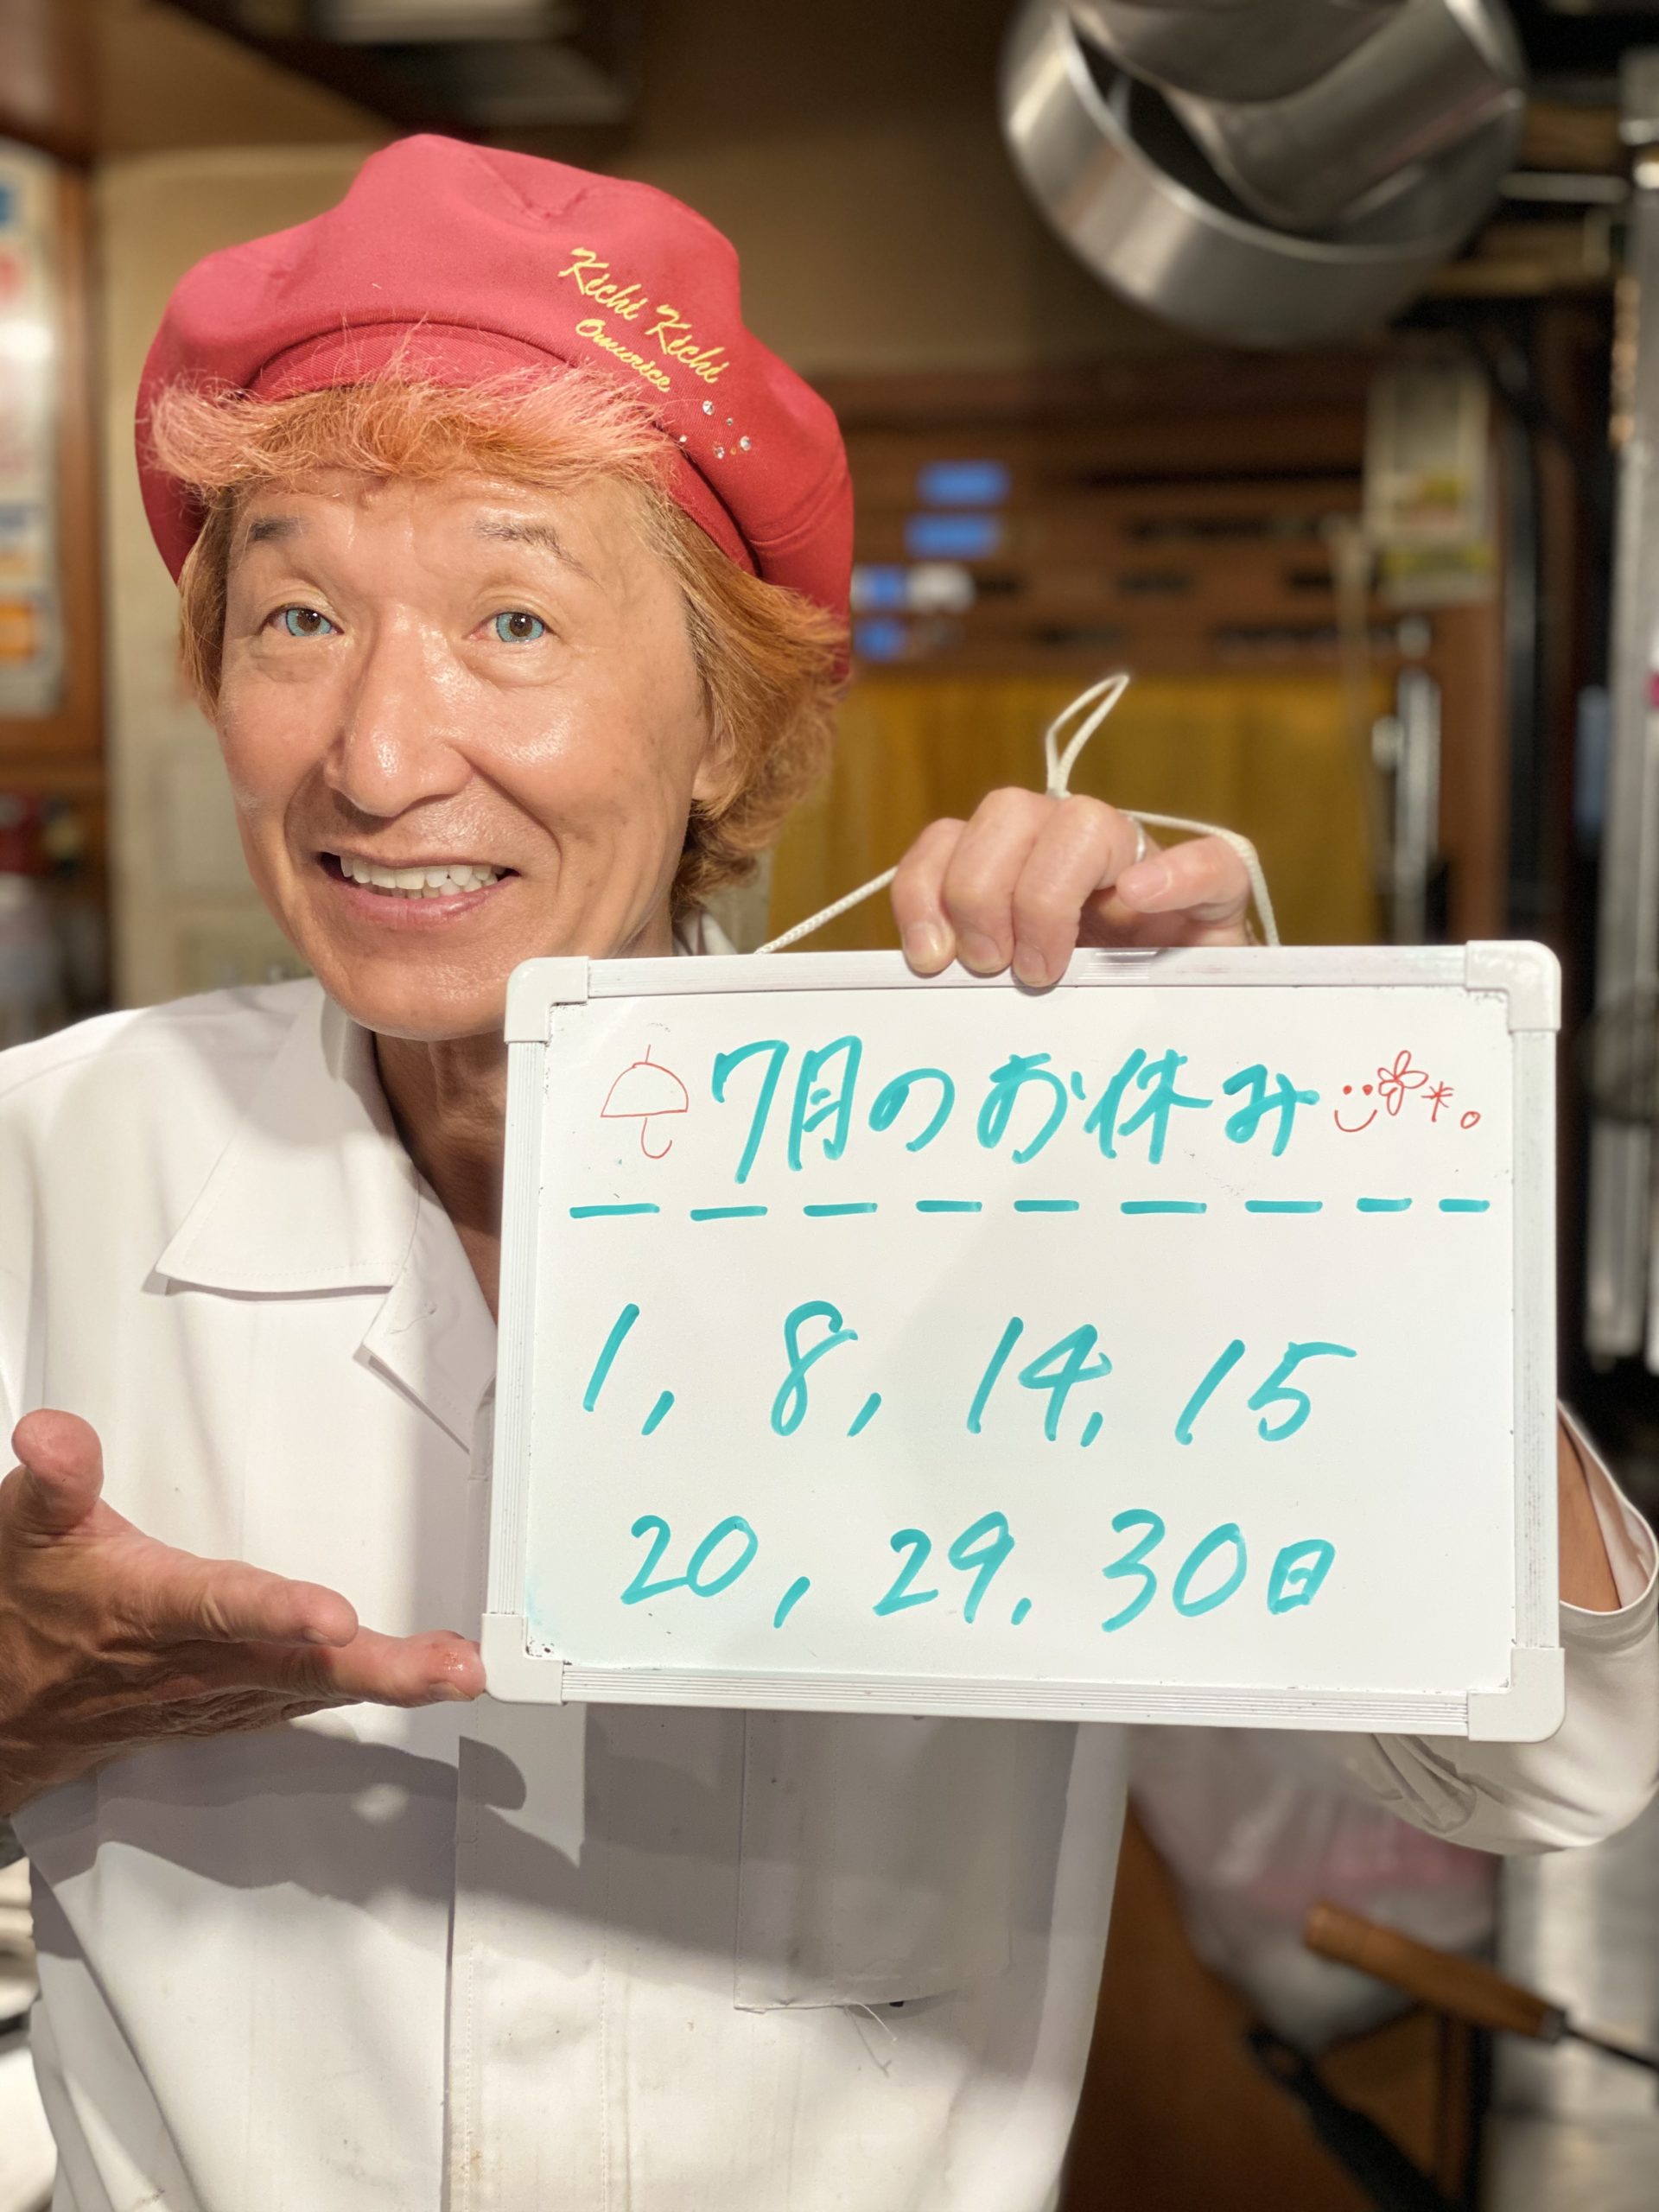 Kichi Kichi
Omurice
7月のお休み
1, 8, 14, 15
20, 29, 30日